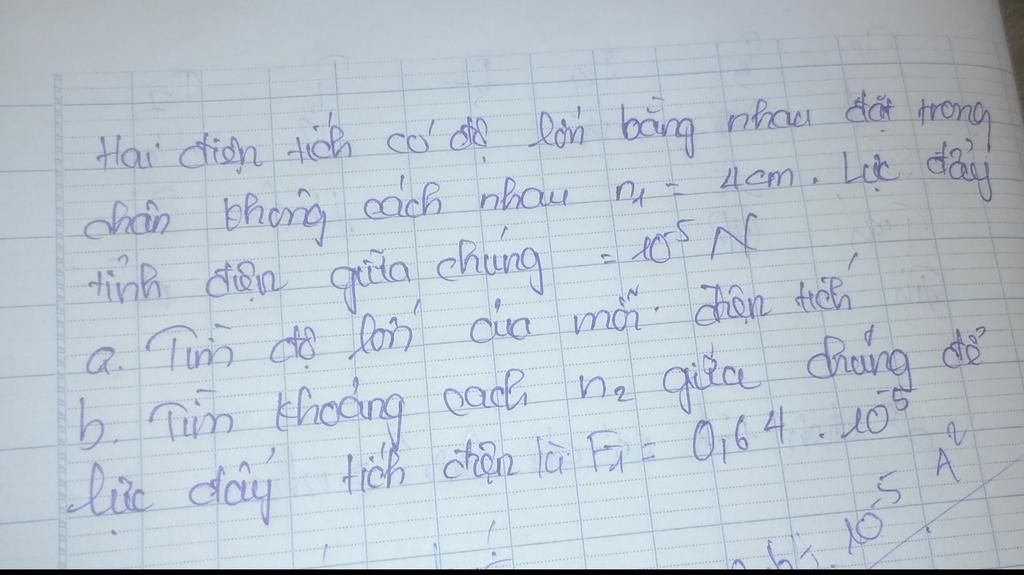 Hai điện tích có độ lớn bằng nhau đặt trong
chân không cách nhau r₁ = 4cm. Lực đẩy
tĩnh điện giữa chúng = 10⁻⁵ N
a. Tìm độ lớn của mỗi điện tích
b. Tìm khoảng cách r₂ giữa chúng để
lực đẩy tích điện là F₁ = 0,64 . 10⁻⁵
10⁻⁵ A²